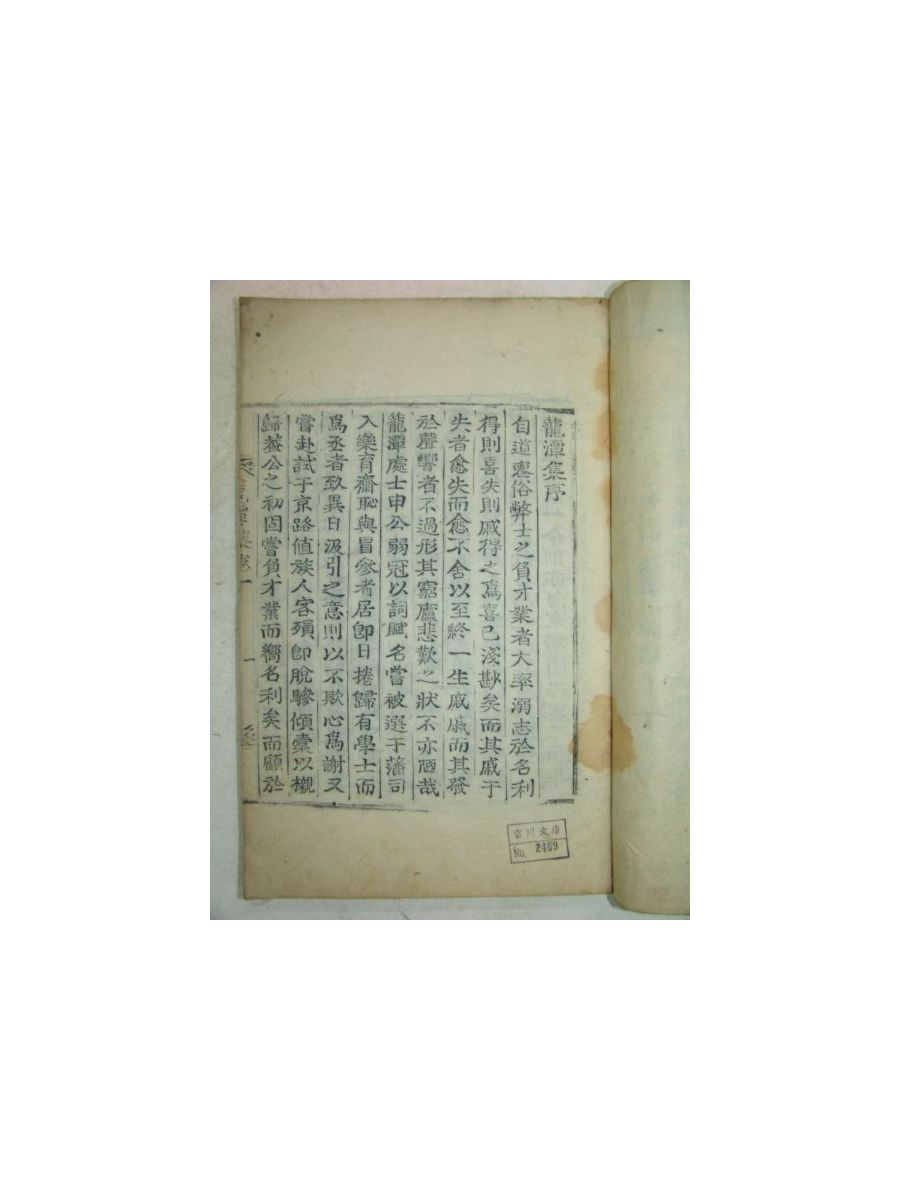 龍潭集序
自道喪俗弊士之負才業者大率溺志於名利
得則喜失則戚得之爲喜已淺尠矣而其戚于
失者愈失而愈不舍以至終一生戚戚而其發
於聲響者不過形其窮廬悲歎之狀不亦陋哉
龍潭處士申公弱冠以詞賦名嘗被選于藩司
入樂育齋恥與冒參者居卽日捲歸有學士而
爲丞者致異日汲引之意則以不欺心爲謝又
嘗赴試于京路値族人客殞卽脫驂傾槖以櫬
歸蓋公之初固嘗負才業而嚮名利矣而顧於
龍潭集 一
文庫
No. 2409